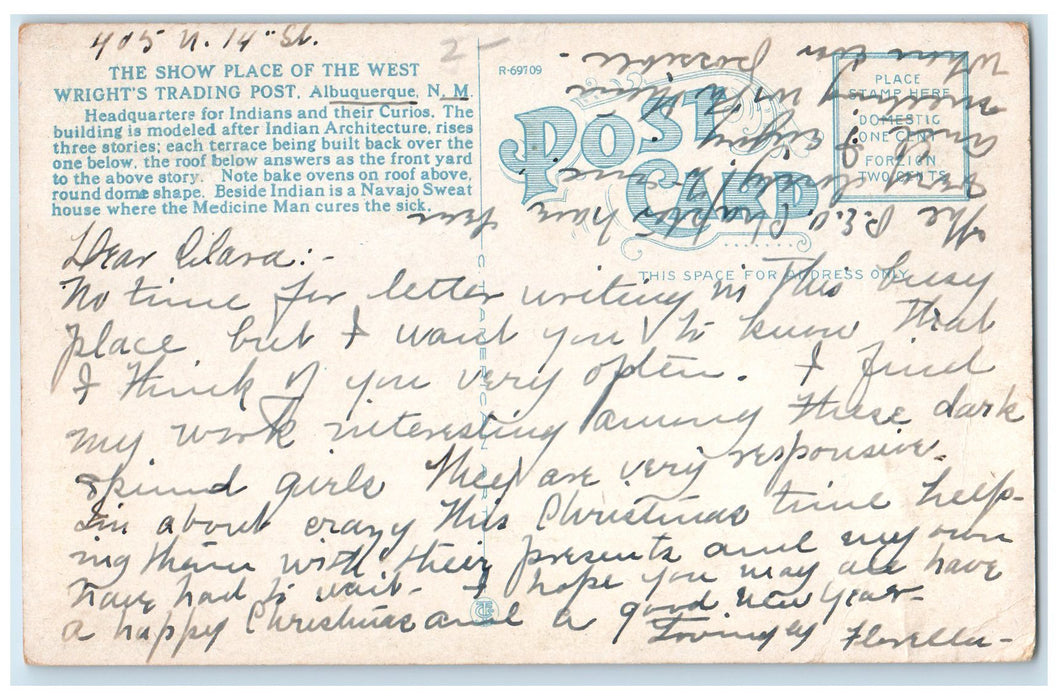 405 N. 14" St.
2-
THE SHOW PLACE OF THE WEST
WRIGHT'S TRADING POST, Albuquerque, N. M.
Headquarters for Indians and their Curios. The
building is modeled after Indian Architecture, rises
three stories; each terrace being built back over the
one below, the roof below answers as the front yard
to the above story. Note bake ovens on roof above,
round dome shape. Beside Indian is a Navajo Sweat
house where the Medicine Man cures the sick.
R-69709
POST
CARD
PLACE
STAMP HERE
DOMESTIC
ONE CENT
FOREIGN
TWO CENTS
THIS SPACE FOR ADDRESS ONLY
Dear Clara:-
No time for letter writing in this busy
place but I want you to know that
I think of you very often. I find
my work interesting among these dark
skinned girls They are very responsive.
I'm about crazy this Christmas time help-
ing them with their presents and my own
have had to wait. I hope you may all have
a happy Christmas and a good new year.
Lovingly Florella-
The P.E.O. Chapter here
have been very lovely to me
and I enjoy
meeting with them
when ever possible.